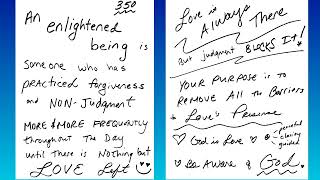 350
An
enlightened
being is
Someone who has
practiced forgiveness
and NON-Judgment
MORE & MORE FREQUENTLY
throughout The Day
until There is Nothing but
LOVE Left
Love is
Always
There
But judgment BLOCKS IT!
YOUR PURPOSE is TO
REMOVE ALL The Barriers
to Love's Presence
God is Love
peaceful
clearing
guided
Be Aware of God.